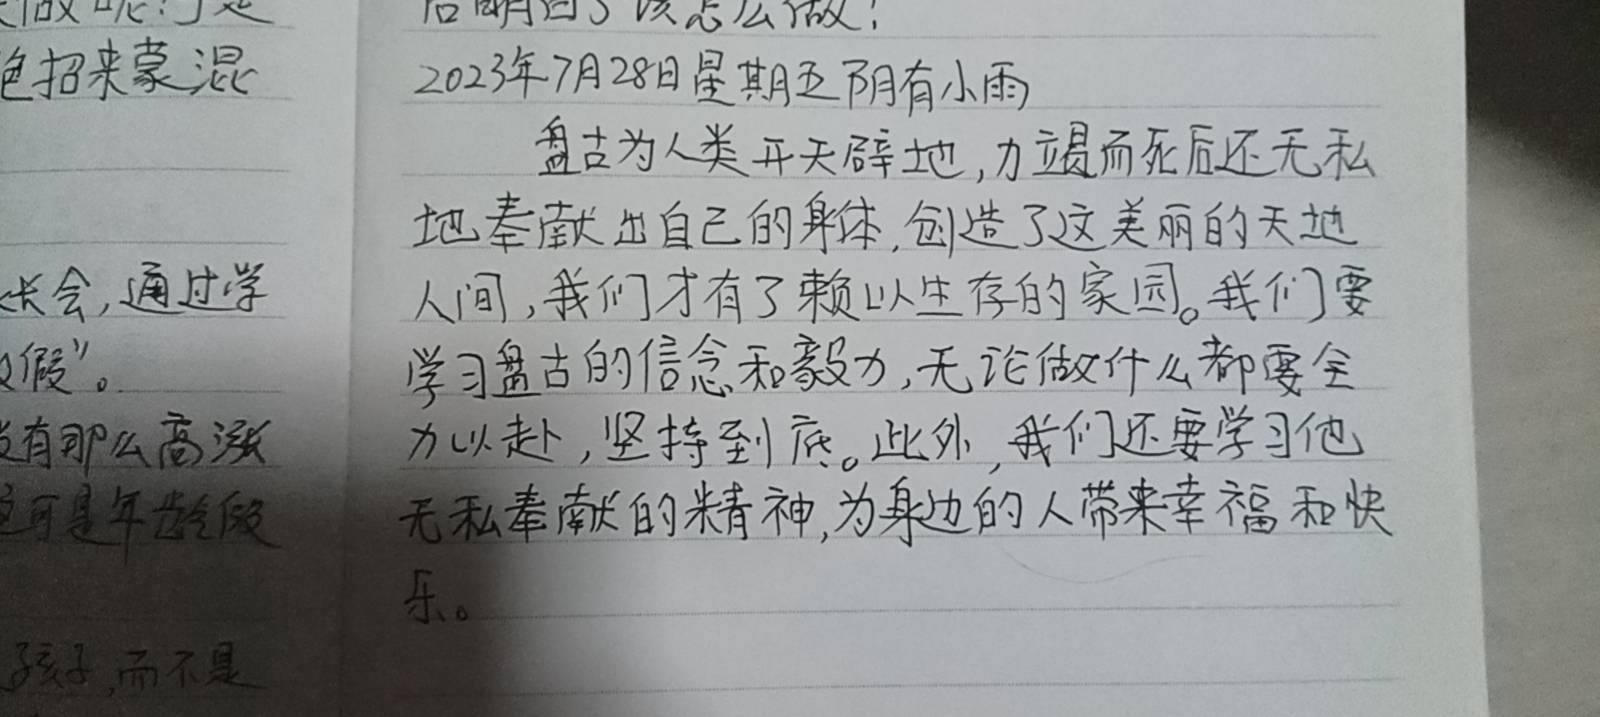 招来蒙混
长会,通过学
假”。
有那么高涨
可是年龄段
孩子,而不是
后明白了该怎么做!
2023年7月28日星期五阴有小雨
盘古为人类开天辟地,力竭而死后还无私
地奉献出自己的身体,创造了这美丽的天地
人间,我们才有了赖以生存的家园。我们要
学习盘古的信念和毅力,无论做什么都要全
力以赴,坚持到底。此外,我们还要学习他
无私奉献的精神,为身边的人带来幸福和快
乐。